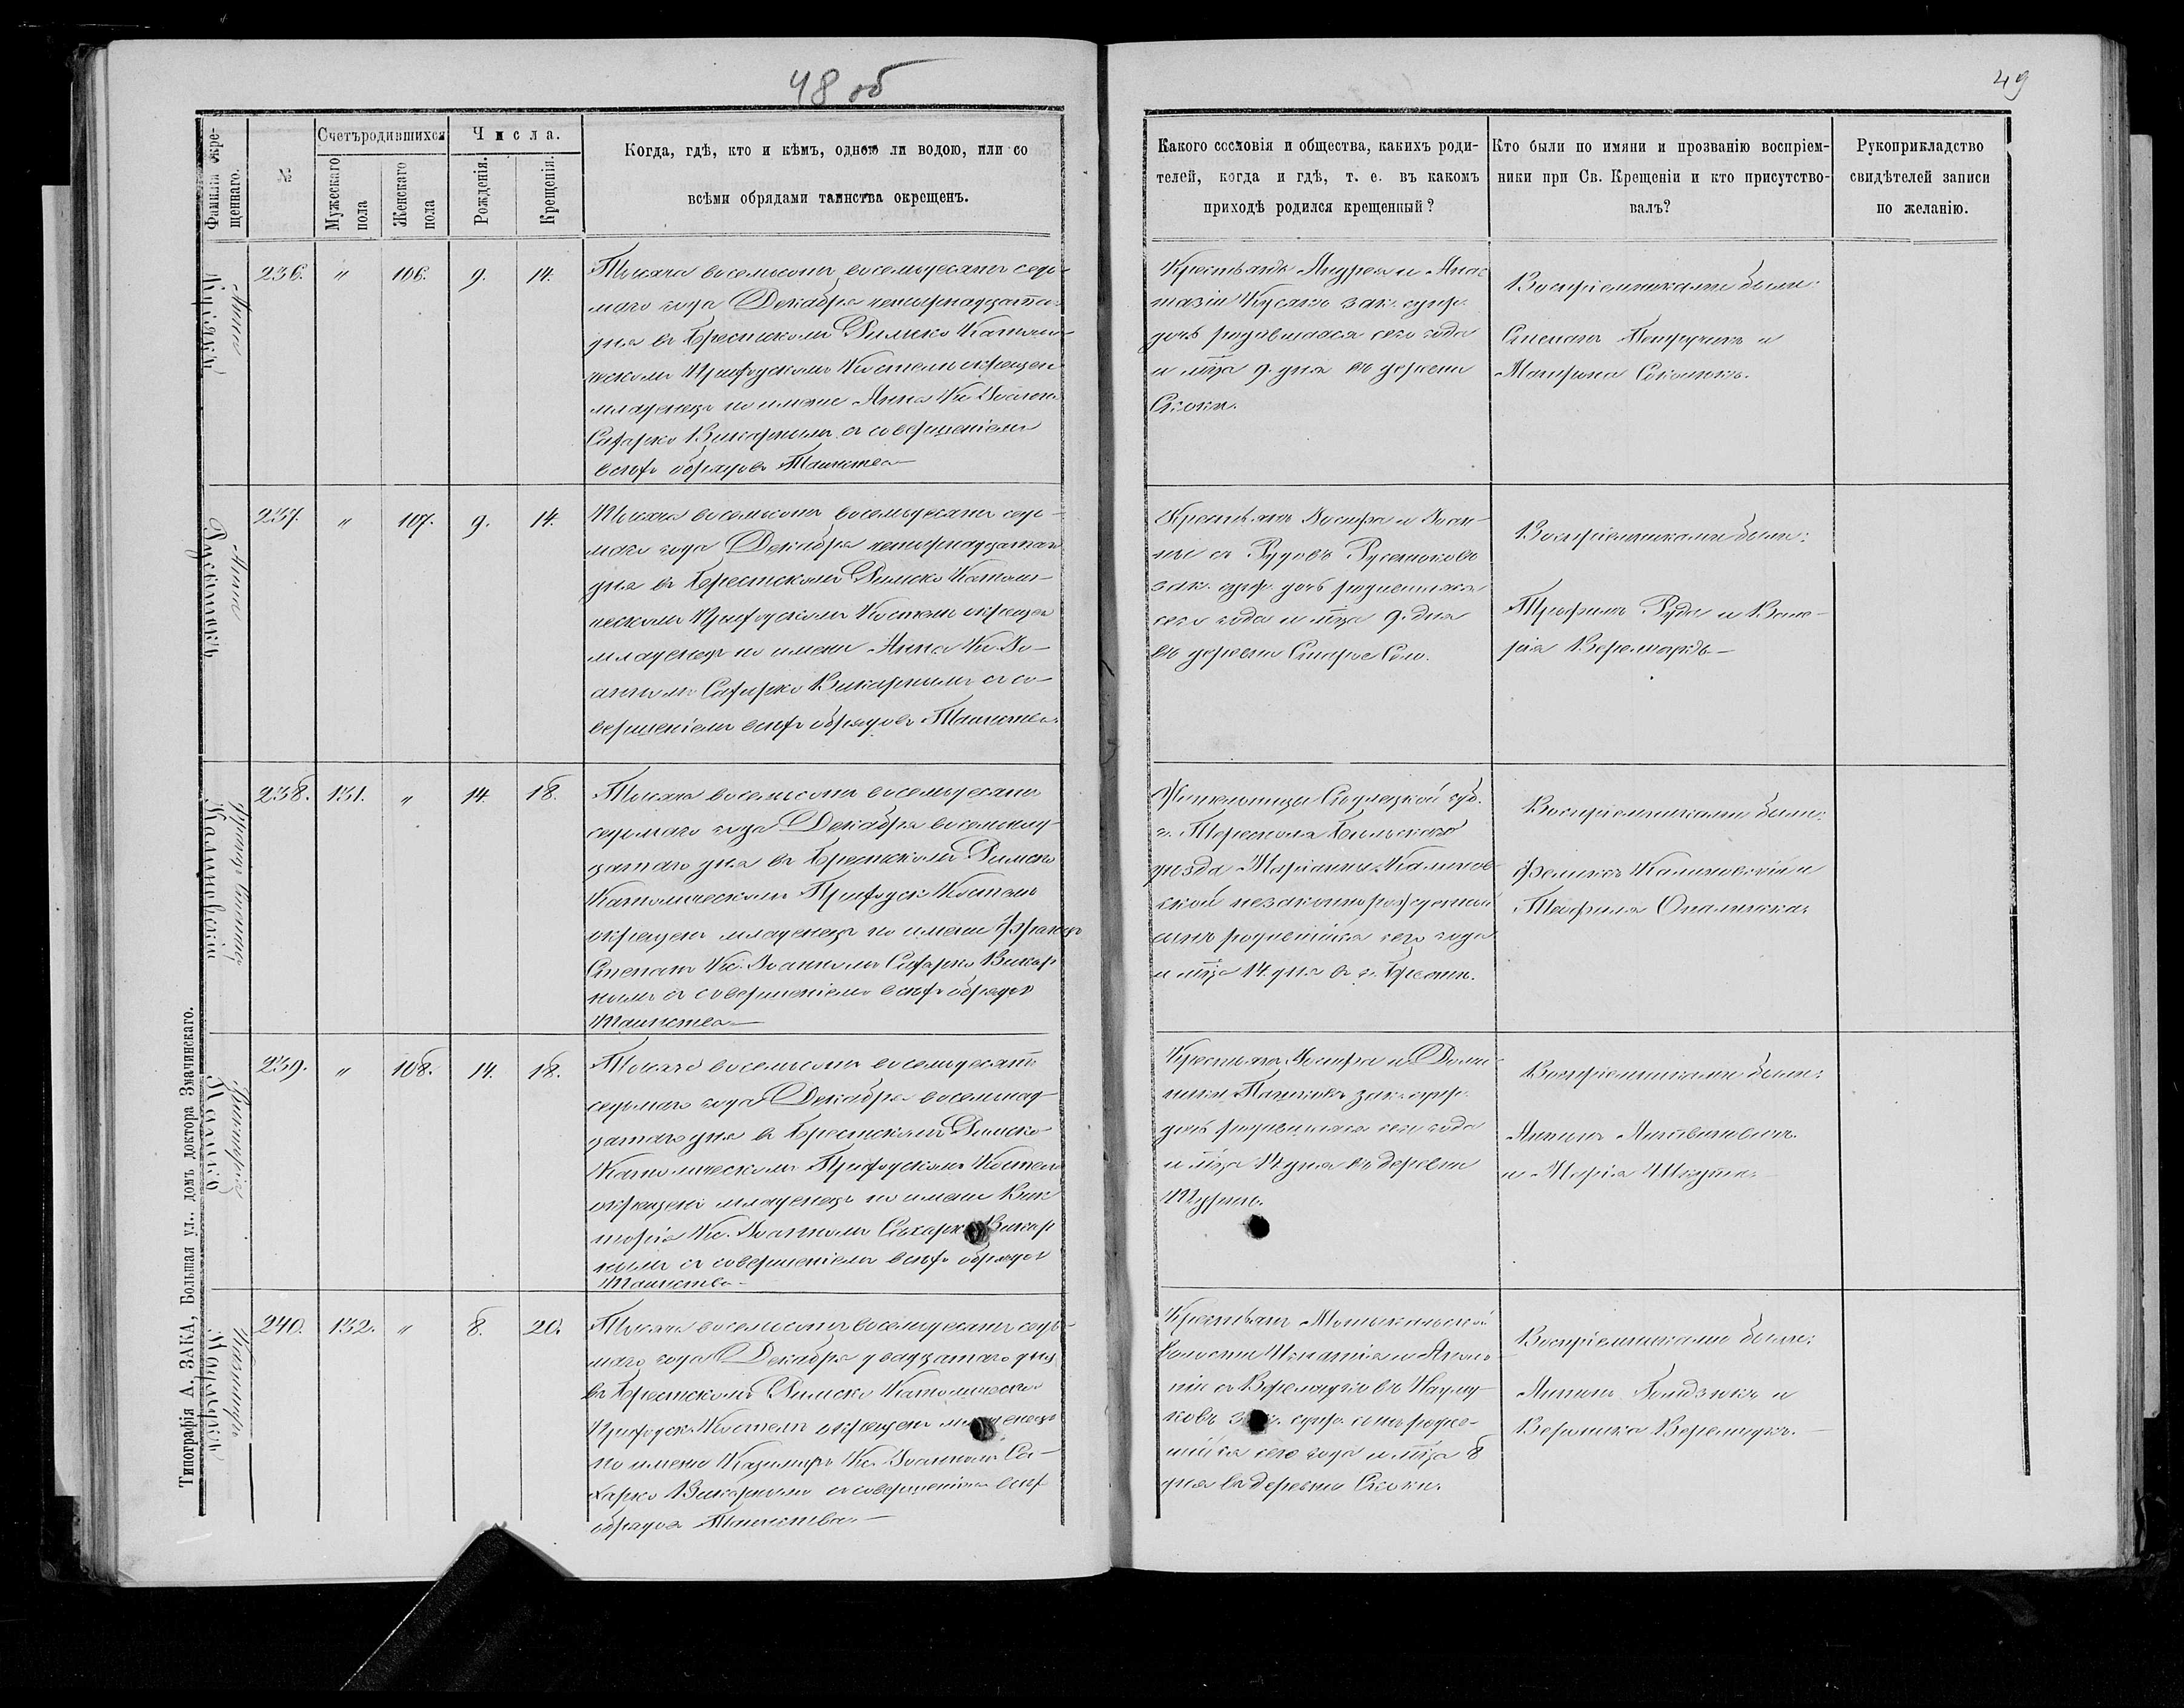 48 об
49
Фамилія окрещеннаго.
№
Счетъ родившихся
Мужескаго пола
Женскаго пола
Числа.
Рожденія.
Крещенія.
Когда, гдѣ, кто и кѣмъ, одною ли водою, или со
всѣми обрядами таинства окрещенъ.
Какого сословія и общества, какихъ роди-
телей, когда и гдѣ, т. е. въ какомъ
приходѣ родился крещенный?
Кто были по имяни и прозванію воспріем-
ники при Св. Крещеніи и кто присутство-
валъ?
Рукоприкладство
свидѣтелей записи
по желанію.
Анна
236. " 106. 9. 14.
Тысяча восемьсотъ восемьдесятъ седь-
маго года Декабря четырнадцатаго
дня въ Брестскомъ Римско Католи-
ческомъ Приходскомъ Костелѣ окрещен
младенецъ по имени Анна Кс. Іоанномъ
Сахарко Викарнымъ съ совершеніемъ
всѣхъ обрядовъ Таинства
Крестьянъ Андрея и Анас
тазіи зак. супр.
дочь родившаяся сего года
и м̃ца 9. дня въ деревни
Скоки.
Воспріемниками были:
Степанъ и
Марина
Русецюкъ Анна
237. " 107. 9. 14.
Тысяча восемьсотъ восемьдесятъ седь-
маго года Декабря четырнадцатаго
дня въ Брестскомъ Римско Католи-
ческомъ Приходскомъ Костелѣ окрещен
младенецъ по имени Анна Кс. Іо-
анномъ Сахарко Викарнымъ съ со-
вершеніемъ всѣхъ обрядовъ Таинства.
Крестьянъ Іосифа и Іоан-
ны съ Рудовъ
зак. супр. дочь родившаяся
сего года и м̃ца 9. дня
въ деревни Старое Село.
Воспріемниками были:
Руда и Вале-
рія
Калиновскій Францъ Степанъ
238. 131. " 14. 18.
Тысяча восемьсотъ восемьдесятъ
седьмаго года Декабря восемнад-
цатаго дня въ Брестскомъ Римско
Католическомъ Приходск. Костелѣ
окрещенъ младенецъ по имени Францъ
Степанъ Кс. Іоанномъ Сахарко Викар
нымъ съ совершеніемъ всѣхъ обрядовъ
Таинства
Жительницы Сѣдлецкой губ.
г. Тересполя Бѣльскаго
уѣзда Маріанны Калинов-
ской незаконнорожденный
сынъ родившійся сего года
и м̃ца 14. дня въ г. Брестѣ.
Воспріемниками были:
Феликсъ Калиновскій и
Теофиля Опалинская
Викторія
239. " 108. 14. 18.
Тысяча восемьсотъ восемьдесятъ
седьмаго года Декабря восемнад-
цатаго дня въ Брестскомъ Римско
Католическомъ Приходскомъ Костелѣ
окрещенъ младенецъ по имени Вик
торія Кс. Іоанномъ Сахарко Викар
нымъ съ совершеніемъ всѣхъ обрядовъ
Таинства
Крестьянъ Іосифа и Доми
ники зак. супр.
дочь родившаяся сего года
и м̃ца 14 дня въ деревни
Воспріемниками были:
Антонъ
и Марія
Казиміръ
240. 132. " 8. 20.
Тысяча восемьсотъ восемьдесятъ седь-
маго года Декабря двадцатаго дня
въ Брестскомъ Римско Католическомъ
Приходск. Костелѣ окрещенъ младенецъ
по имени Казиміръ Кс. Іоанномъ Са-
харко Викарнымъ съ совершеніемъ всѣхъ
обрядовъ Таинства
Крестьянъ Мотыкальской
волости Игнатія и
съ
зак. супр. сынъ родив-
шійся сего года и м̃ца 8
дня въ деревни Скоки.
Воспріемниками были:
Антонъ и
Вероника
Типографія А. ЗАКА, Большая ул., домъ доктора Значинскаго.